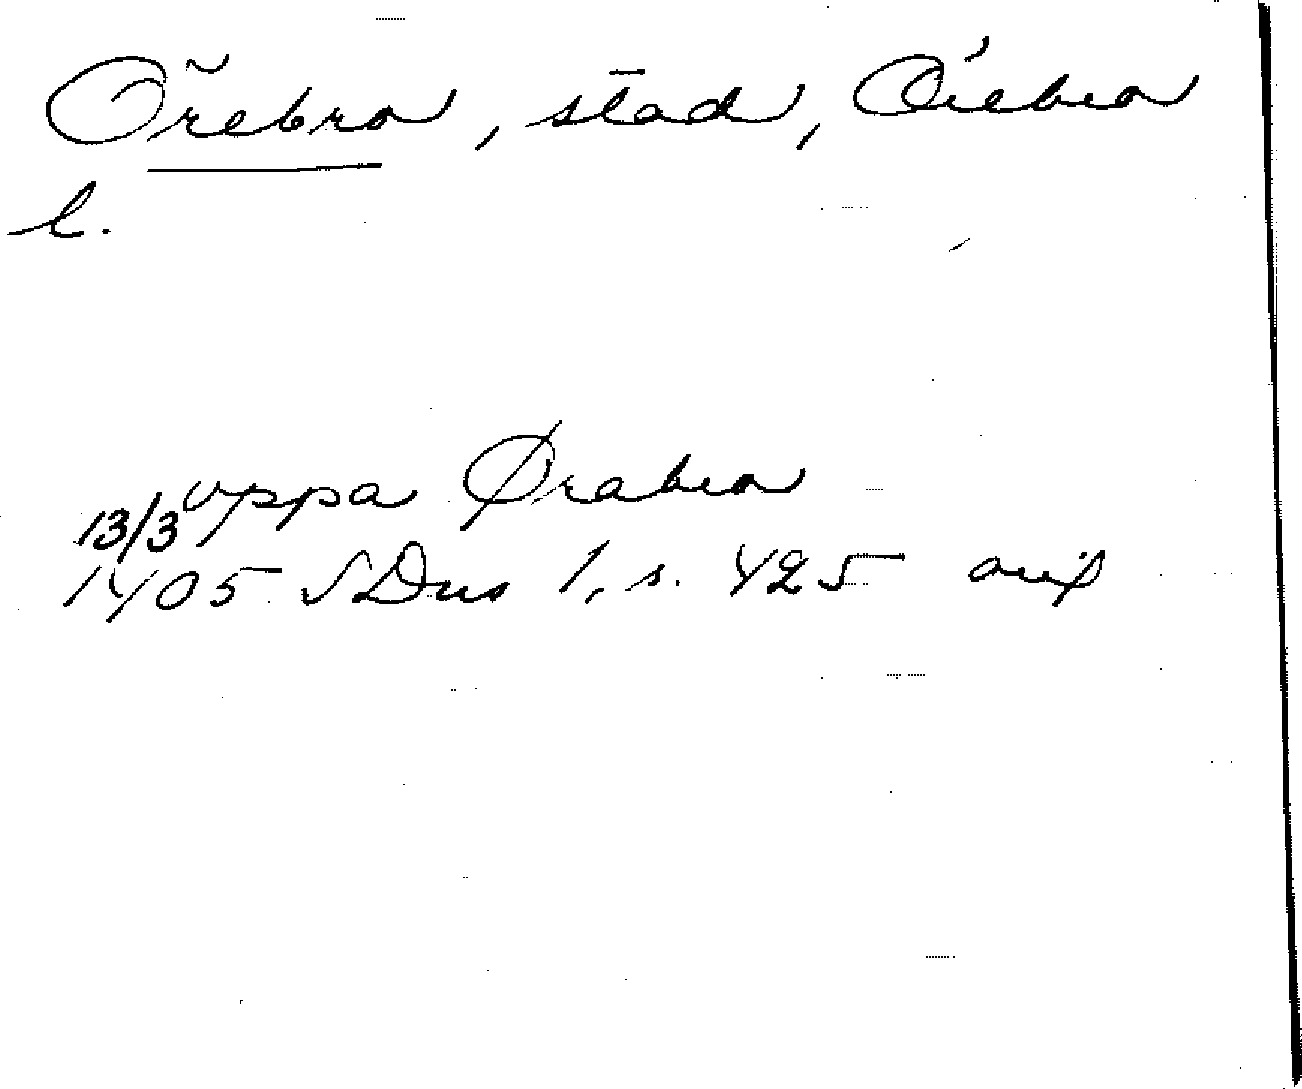 Örebro, stad, Örebro
l.
uppa Ørabro
13/3
1405 SDns 1, s. 425 avs